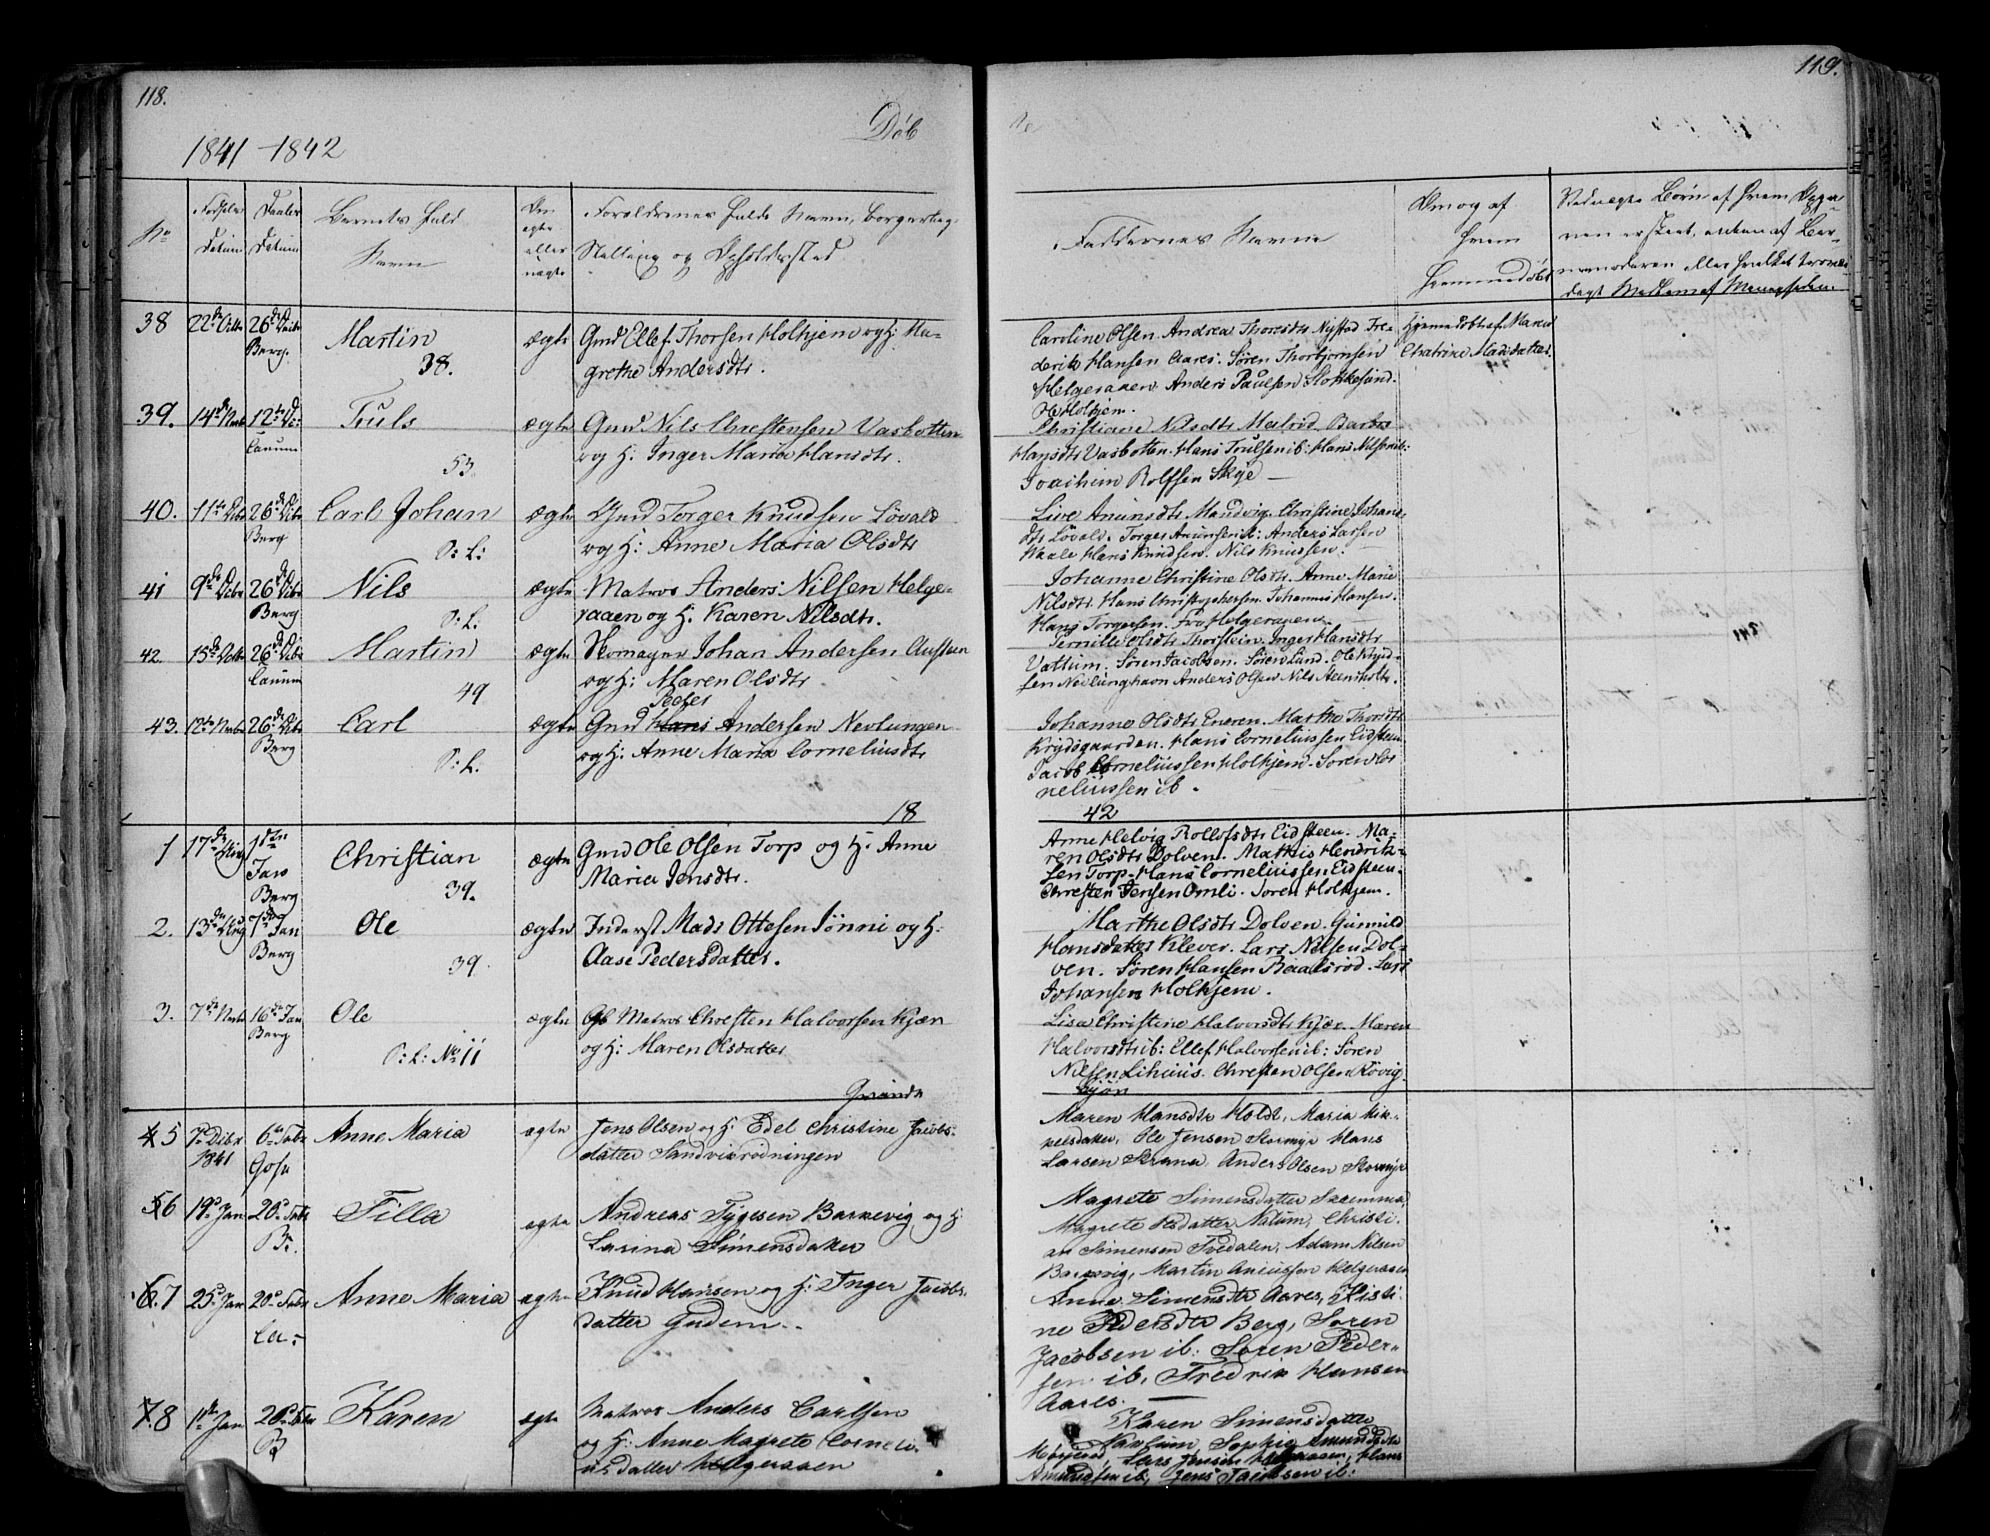 118.
119.
Døb
1841-1842
No
Fødsels Datum
Daabs Datum
Barnets fulde Navn
Om ægte eller uægte
Forældrenes fulde Navn, Borgerlige Stilling og Opholdssted
Faddernes Navne
Om og af hvem hjemmedøbt
38 22de Octbr 26de Decbr Berg. Martin 38. ægte
Gmd Ellef Thorsen Holkjem og H: Ma-
grethe Andersdtr.
Caroline Olsen. Andrea Thoresdtr Nystad Fre-
derik Hansen Aares. Søren Thorbjørnsen
Helgeraaen. Anders Paulsen Stokkesund.
Ole Holkjem.
Hjemmedøbt af Maren
Chatrine Madsdatter.
39. 14de Novbr 12te De: Tanum Truls 53 ægte
Gmd. Nils Christensen Vasbotten
og H: Inger Maria Hansdtr.
Christiane Nilsdtr Malerød. Barbra
Hansdtr Vasbotten. Hans Trulsen ib: Hans Nilsen ib:
Joachim Rolfsen Skije
40. 11te Dcbr 26de Dcbr Berg Carl Johan P: L: ægte
Gmd Torger Knudsen Løvald
og H: Anne Maria Olsdtr
Live Anunsdtr Manvig. Christine Johans-
dtr Løvald. Torger Anunsen ib: Anders Larsen
Waale Hans Knudsen. Nils Knussen.
41 9de Dcbr 26de Dcbr Berg Nils P: L. ægte
Matros Anders Nilsen Helge-
raaen og H. Karen Nilsdtr.
Johanne Christine Olsdtr. Anne Marie
Nilsdtr. Hans Christophersen. Johannes Hansen.
Hans Torgersen. Fra Helgeraaen
42. 15de Octbr 26de Dcbr Tanum Martin 49 ægte
Skomager Johan Andersen Austeen
og H: Maren Olsdtr
Pernille Olsdtr Thorstein. Inger Hansdtr
Vattum. Søren Jacobsen. Søren Lund. Ole Knud-
sen Nevlunghavn Anders Olsen Nils Steensholt.
43. 13de Novbr 26de Dcbr Berg Carl P: L. ægte
Peder
Gmd Hans Andersen Nevlungen
og H: Anne Maria Corneliusdtr
Johanne Olsdtr Eneren. Marthe Thorsdtr
Krydsgaarden. Hans Corneliussen Eidsteen
Jacob Corneliussen Holkjem. Søren Cor
neliussen ib.
18
42
1 17de Aug 1ste Jan Berg Christian 39. ægte
Gmd Ole Olsen Torp og H. Anne
Maria Jensdtr.
Anne Helvig Rollofsdtr Eidsteen. Ma-
ren Olsdtr Dolven. Mathis Hendrik-
sen Torp. Hans Corneliussen Eidsteen.
Christen Jensen Omli. Søren Holkjem.
2. 13de Aug 1ste Jan Berg Ole 39. ægte
Inderst Mads Ottesen Sønni og H:
Aase Pedersdatter.
Marthe Olsdtr Dolven. Gunnild
Hansdatter Klever. Lars Nilsen Dol-
ven. Søren Hansen Baalsrød. Lars
Johansen Holkjem.
3. 7de Novbr 16de Jan Berg Ole P: L: No 11 ægte
Matros Christen Halvorsen Kjær
og H: Maren Olsdatter
Lisa Christine Halvorsdtr Kjær. Maren
Halvorsdtr ib: Ellef Halvorsen ib: Søren
Nilsen Lihuus. Christen Olsen Røvig
5 7de Dcbr 1841 6te Febr Anne Maria ægte
Jens Olsen og H. Edel Christine Jacobs-
datter Sandvigrødningen
Maren Hansdtr Holdt, Maria Mik-
kelsdatter, Ole Jensen Stormyr Hans
Larsen Skrana, Anders Olsen Stormyr
6 19de Jan 20de Febr B. Tilla ægte
Andreas Tygesen Barkevig og H.
Larina Simensdatter
Magrete Simensdatter
Magrete Isdatter Natum, Christi-
an Simensen Tvedalen, Adam Nilsen
Barkevig, Martin Anussen Helgeraaen
6.7 25de Jan 20de Febr Anne Maria ægte
Knud Hansen og H: Inger Jacobs-
datter Gudem.
Anne Simensdtr Aares, Kisti-
ne Pedersdtr Berg, Søren
Jacobsen ib: Søren Peder-
sen ib, Fredrik Hansen
Aares.
7.8 1ste Jan 20de Febr B. Karen ægte
Matros Anders Carlsen
og H: Anne Magrete Corneli-
usdatter Helgeraaen
Karen Simensdatter
Nantum, Sophie Amundsdtr
Lars Jensen Helgeraaen, Hans
Amundsen ib, Jens Jacobsen ib: